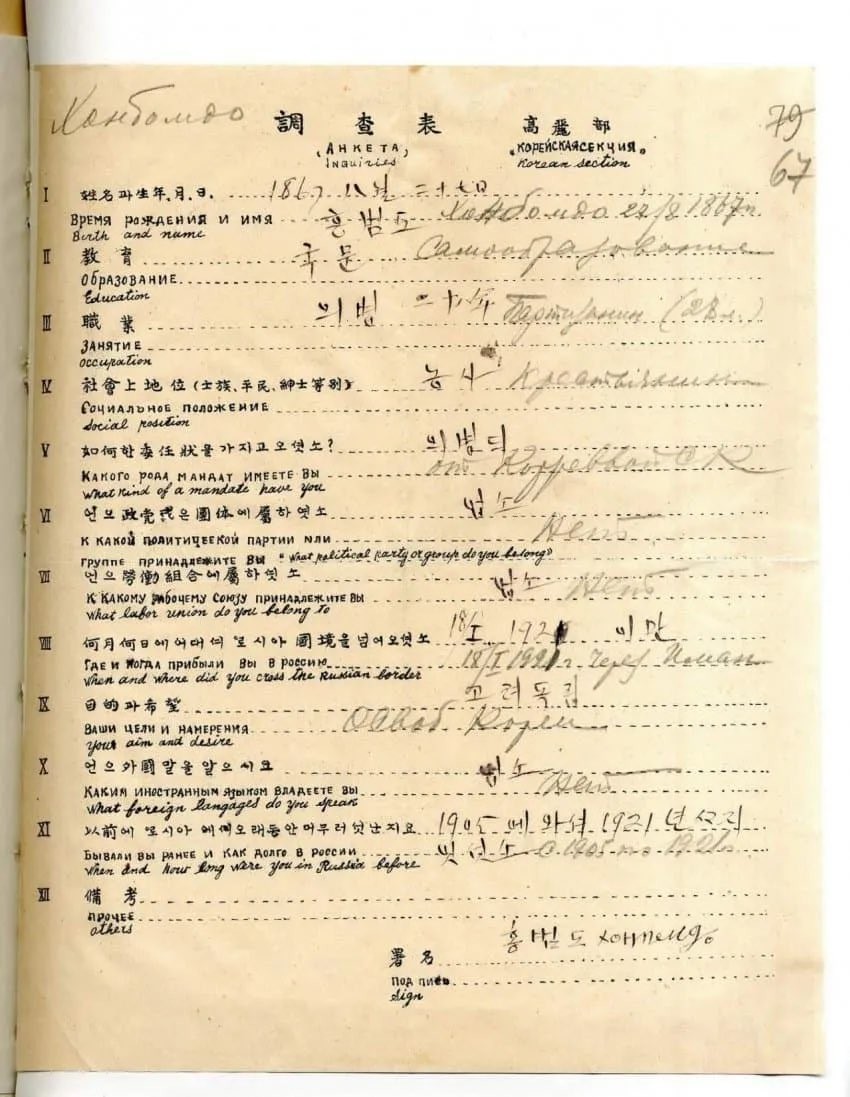 Ханбомдо
調 查 表 高麗部 79
(АНКЕТА) "КОРЕЙСКАЯ СЕКЦИЯ"
Inquiries Korean section 67
I 姓名과生年.月.日. 1867 八월 二十七日
ВРЕМЯ РОЖДЕНИЯ И ИМЯ 홍범도 Ханбомдо 27/8 1867г.
Birth and name
II 敎育 국문 Самообразование
ОБРАЗОВАНИЕ
Education
III 職業 의병 二十年 Партизанин (28 л.)
ЗАНЯТИЕ
occupation
IV 社會上地位(士族、平民、紳士等別) 농사
СОЦИАЛЬНОЕ ПОЛОЖЕНИЕ
social position
V 如何한委任狀을가지고오셧소?
КАКОГО РОДА МАНДАТ ИМЕЕТЕ ВЫ
what kind of a mandate have you
VI 언으政党或은團体에屬하엿소 업소 Нет
К КАКОЙ ПОЛИТИЧЕСКОЙ ПАРТИИ ИЛИ
ГРУППЕ ПРИНАДЛЕЖИТЕ ВЫ "what political party or group do you belong"
VII 언으勞働組合에屬하엿소 업소 Нет
К КАКОМУ РАБОЧЕМУ СОЮЗУ ПРИНАДЛЕЖИТЕ ВЫ
what labor union do you belong to
VIII 何月何日에어대여 로시아 國境을넘어오셧소 18/I 1921 이만
ГДЕ И КОГДА ПРИБЫЛИ ВЫ В РОССИЮ 18/I 1921 г. Через Иман
when and where did you cross the Russian border
IX 目的과希望 고려독립
ВАШИ ЦЕЛИ И НАМЕРЕНИЯ Освоб Кореи
your aim and desire
X 언으外國말을알으시요 업소
КАКИМ ИНОСТРАННЫМ ЯЗЫКОМ ВЛАДЕЕТЕ ВЫ Нет
what foreign langages do you speak
XI 以前에 로시아 에 오래동안머무러섯난지요 1921 년
БЫВАЛИ ВЫ РАНЕЕ И КАК ДОЛГО В РОССИИ с 1905 по 1921г.
when and how long were you in Russia before
XII 備考
ПРОЧЕЕ
others
홍범도
署名
ПОДПИСЬ
Sign